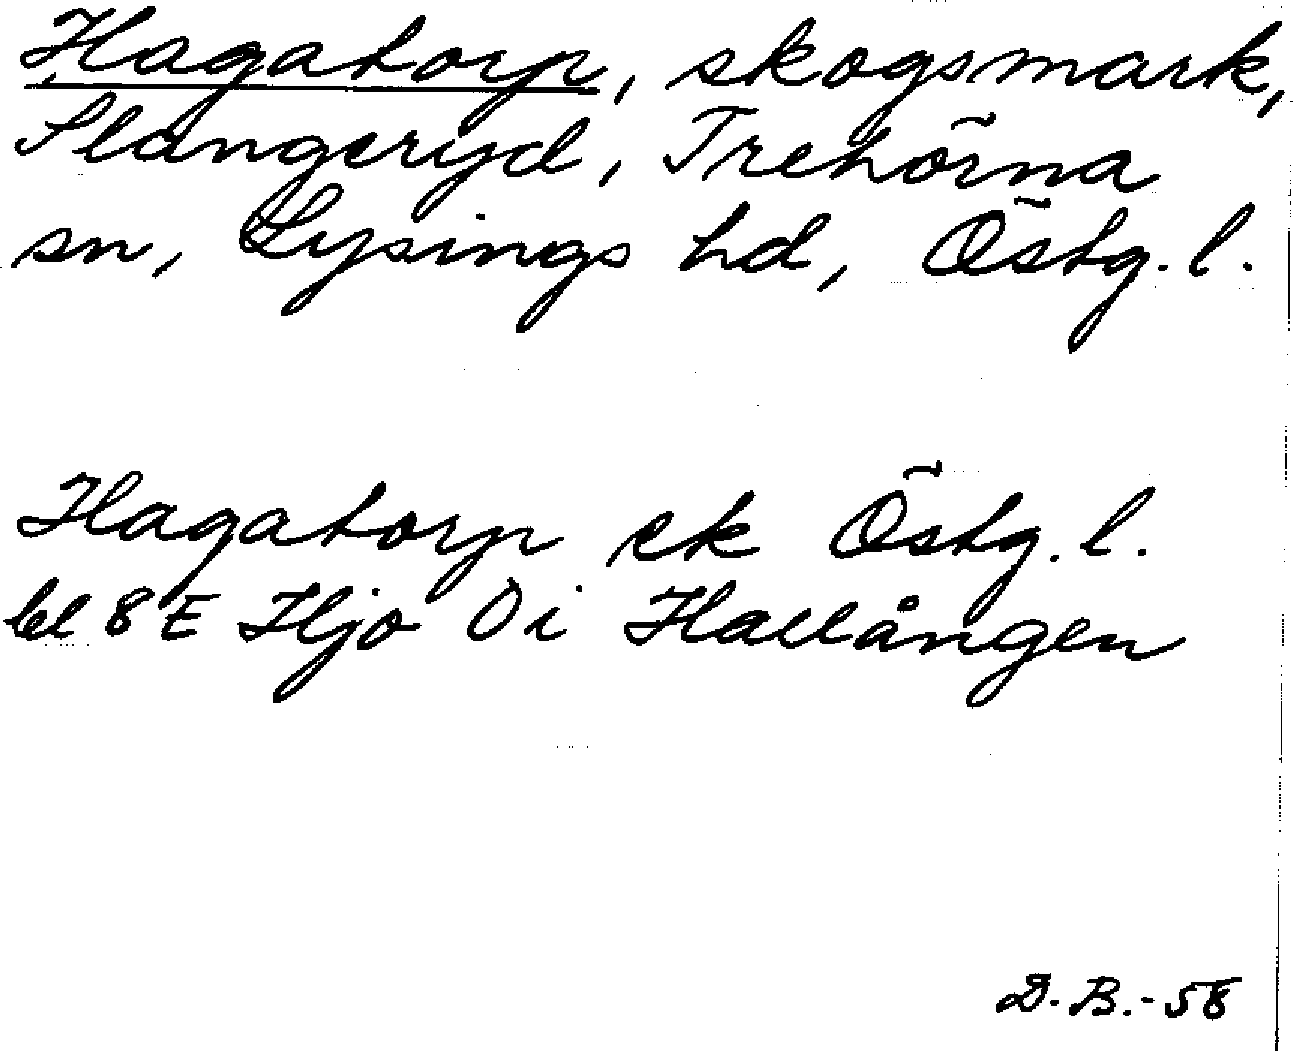 Hagatorp, skogsmark,
Slangeryd, Trehörna
sn, Lysings hd, Östg. l.
Hagatorp ek Östg. l.
bl 8 E Hjo 0 i Havången
D. B. - 58